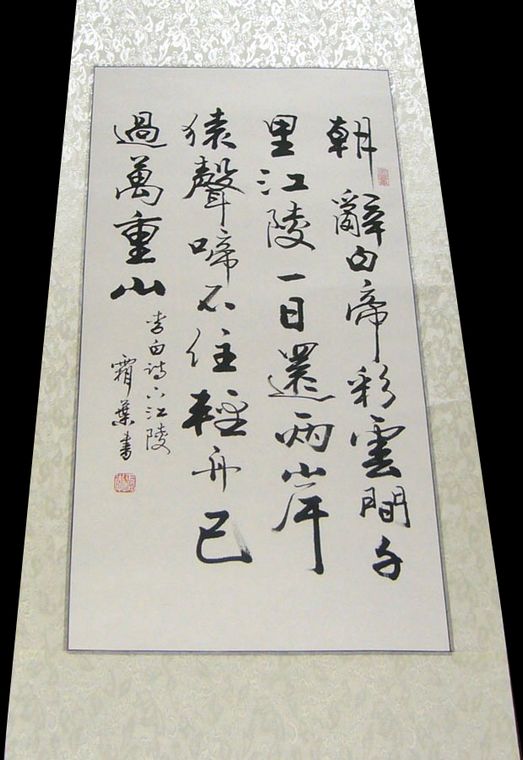 朝辭白帝彩雲間千
里江陵一日還兩岸
猿聲啼不住輕舟已
過萬重山
李白詩下江陵
霜葉書